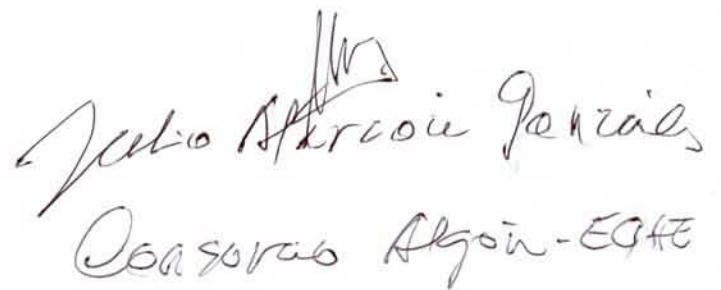 Julio Alarcón González
Consorcio Algón-ECHE